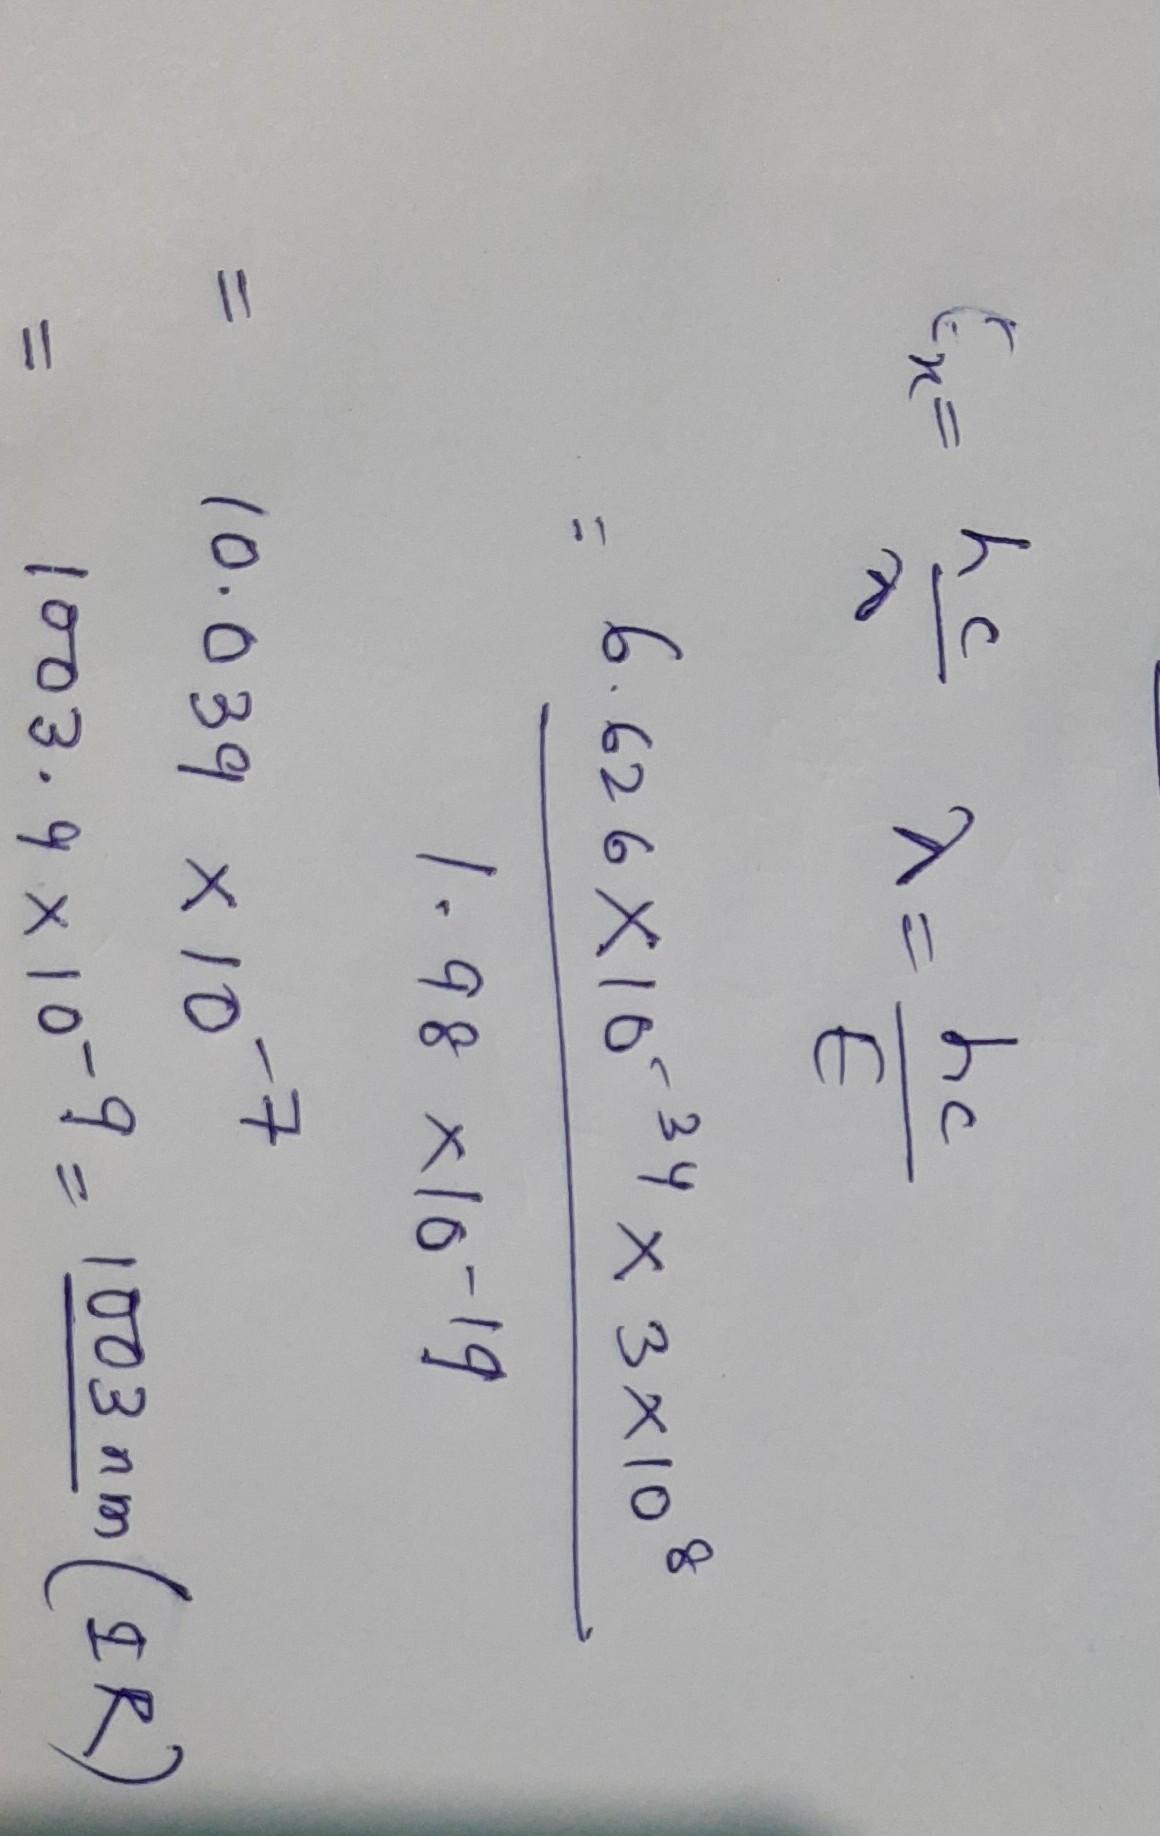 Eλ = hc/λ λ = hc/E
= 6.626 × 10⁻³⁴ × 3 × 10⁸
1.98 × 10⁻¹⁹
= 10.039 × 10⁻⁷
= 1003.9 × 10⁻⁹ = 1003 nm (IR)